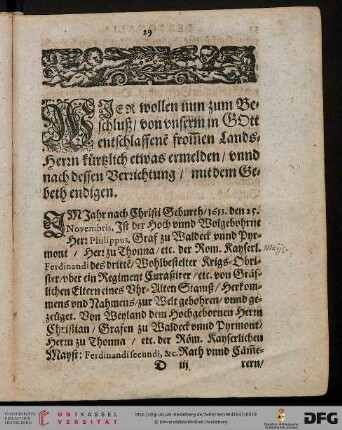 29
WIER wollen nun zum Be-
schluß/ von vnserm in GOtt
entschlaffenē from̃en Lands-
Herrn kürtzlich etwas ermelden/ vnnd
nach dessen Verrichtung/ mit dem Ge-
beth endigen.
IM Jahr nach Christi Geburth/1613. den 25.
Novembris, Ist der Hoch vnnd Wolgebohrne
Herr Philippus, Graf zu Waldeck vnnd Pyr-
mont/ Herr zu Thonna/ etc. der Rom. Kayserl.
Ferdinandi des dritte/ Wohlbestelter Krigs-Obri-
ster/vber ein Regiment Curaßirer/ etc. von Gräf-
lichen Eltern eines Vhr-Alten Stamms/ Herkom-
mens vnd Nahmens/zur Welt gebohren/ vnnd ge-
zeüget. Von Weyland dem Hochgebornen Herrn
Christian/ Grafen zu Waldeck vnnd Pyrmont/
Herrn zu Thonna/ etc. der Röm. Kayserlichen
Mayst: Ferdinandi secundi, &c. Rath vnnd Cam̃e-
D iij
rern/
UNIKASSEL
VERSITÄT
UNIVERSITÄTS-
BIBLIOTHEK
HEIDELBERG
DFG